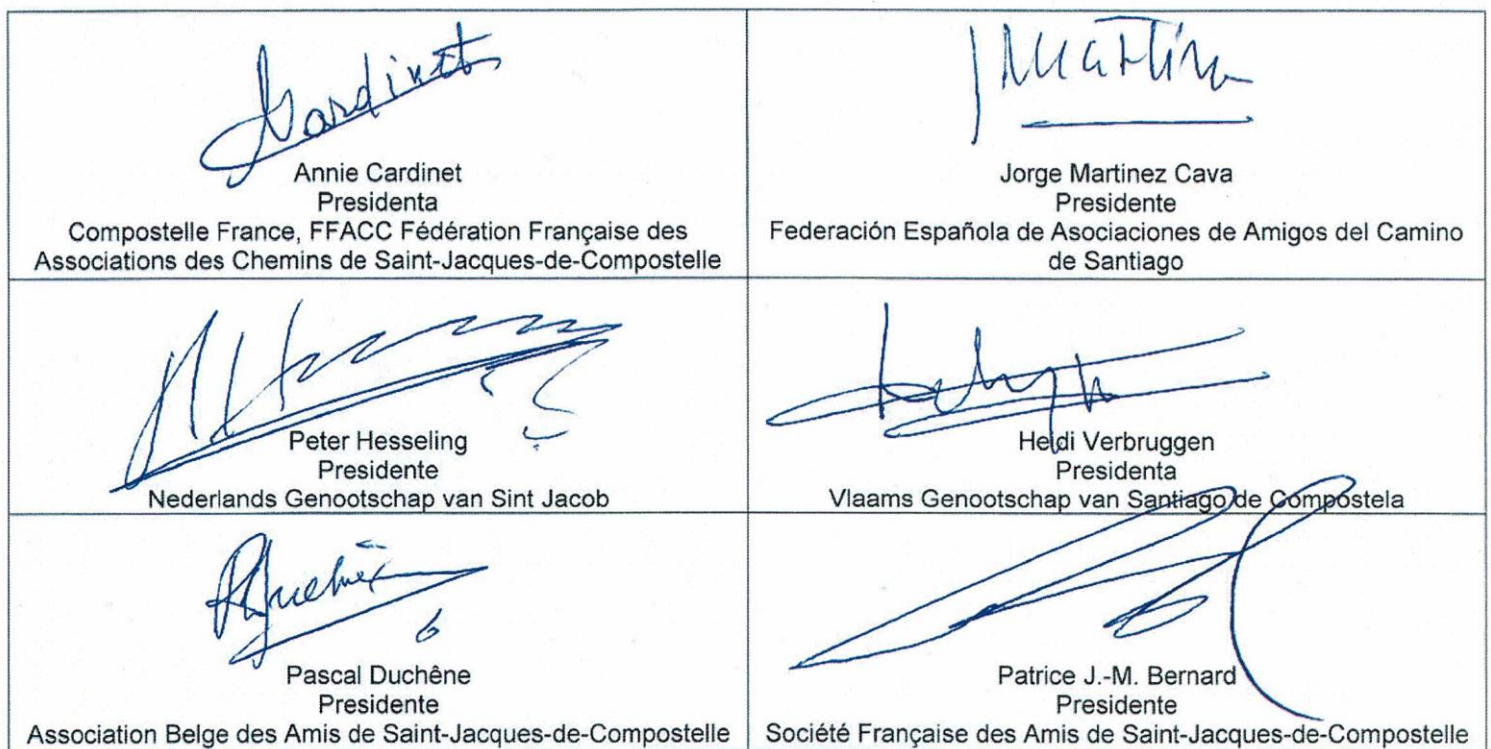 Annie Cardinet
Presidenta
Compostelle France, FFACC Fédération Française des
Associations des Chemins de Saint-Jacques-de-Compostelle
Jorge Martinez Cava
Presidente
Federación Española de Asociaciones de Amigos del Camino
de Santiago
Peter Hesseling
Presidente
Nederlands Genootschap van Sint Jacob
Heidi Verbruggen
Presidenta
Vlaams Genootschap van Santiago de Compostela
Pascal Duchêne
Presidente
Association Belge des Amis de Saint-Jacques-de-Compostelle
Patrice J.-M. Bernard
Presidente
Société Française des Amis de Saint-Jacques-de-Compostelle